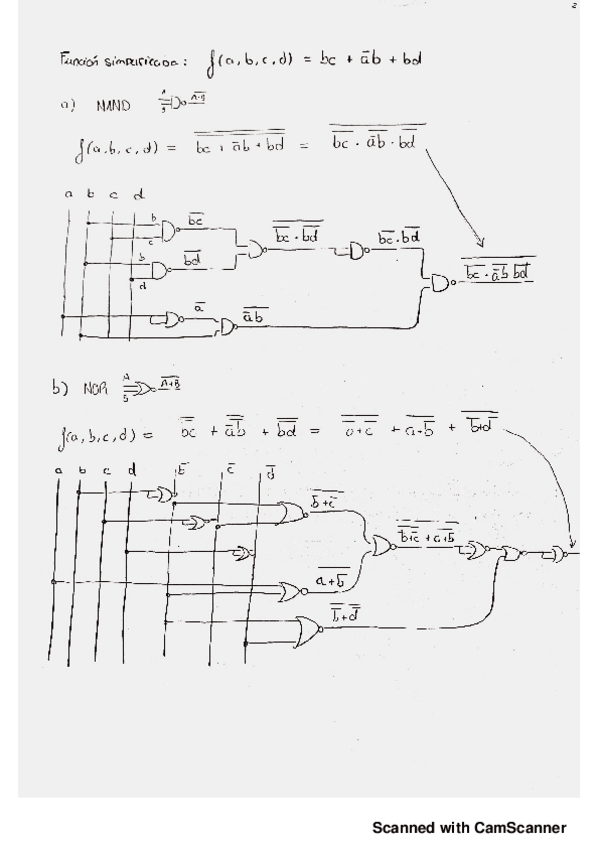 2
Función simplificada: f(a,b,c,d) = bc + a̅b + bd
a) NAND A B A̅·̅B̅
f(a,b,c,d) = b̿c̿ ̿+̿ ̿a̅b̿ ̿+̿ ̿b̿d̿ = b̅c̅ · a̅b̅ · b̅d̅
a b c d
b b̅c̅
c b̅c̅ · b̅d̅ b̅c̅·b̅d̅
b b̅d̅ b̅c̅ · a̅b̅ b̅d̅
d
a̅ a̅b̅
b) NOR A B A̅+̅B̅
f(a,b,c,d) = b̿c̿ + a̅b̿ + b̿d̿ = b̅+c̅ + a+b̅ + b̅+d̅
a b c d b̅ c̅ d̅
b̅+c̅
b̅+c̅ + a+b̅
a+b̅
b̅+d̅
Scanned with CamScanner